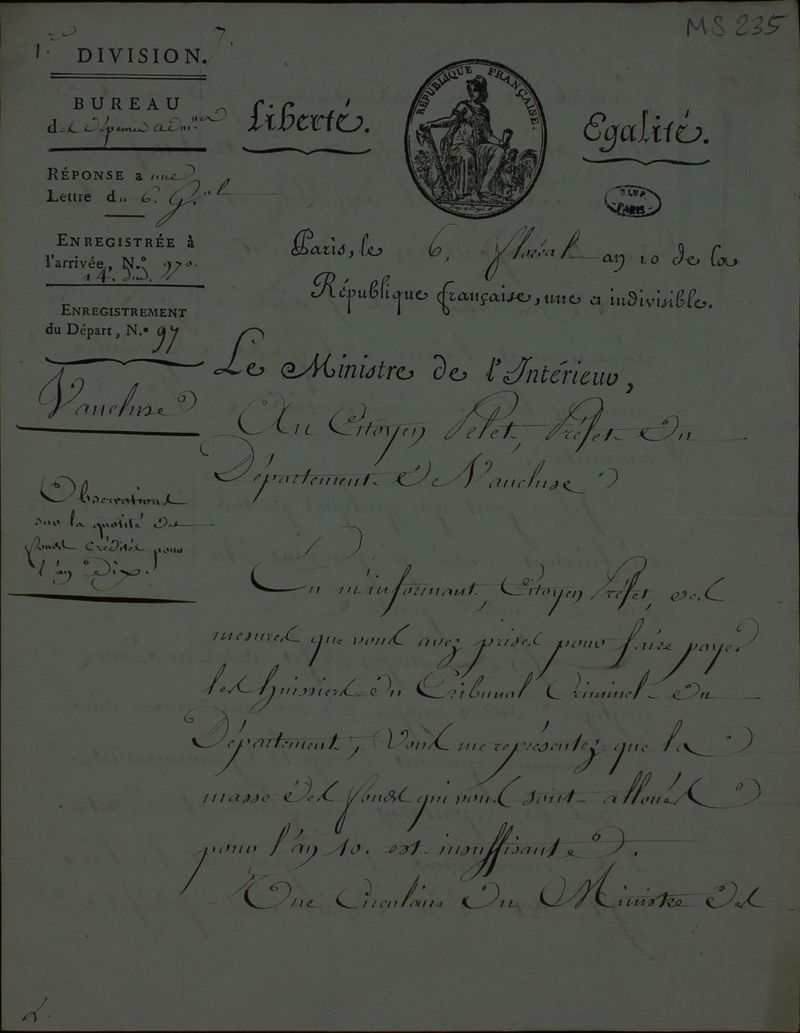 MS 235
1.re DIVISION. 7.
BUREAU
des dépenses adm.ves
RÉPONSE a une
Lettre du 6. G.al
ENREGISTRÉE à
l'arrivée, N.º 970.
ENREGISTREMENT
du Départ, N.º 97
Vaucluse
Observations
sur la quotité des
fonds crédités pour
l'an Dix.
Liberté.
RÉPUBLIQUE FRANÇAISE.
Egalité.
PARIS
Paris, le 6, floréal an 10 de la
République française, une et indivisible.
Le Ministre de l'Intérieur,
Au Citoyen Pelet, Préfet du
Département de Vaucluse
En m'informant, Citoyen Préfet, des
mesures que vous avez prises pour faire payer
les huissiers du Tribunal Criminel du
Département, Vous me représentez que la
masse des fonds qui vous sont alloués
pour l'an 10. est insuffisante.
Une Circulaire du Ministre des